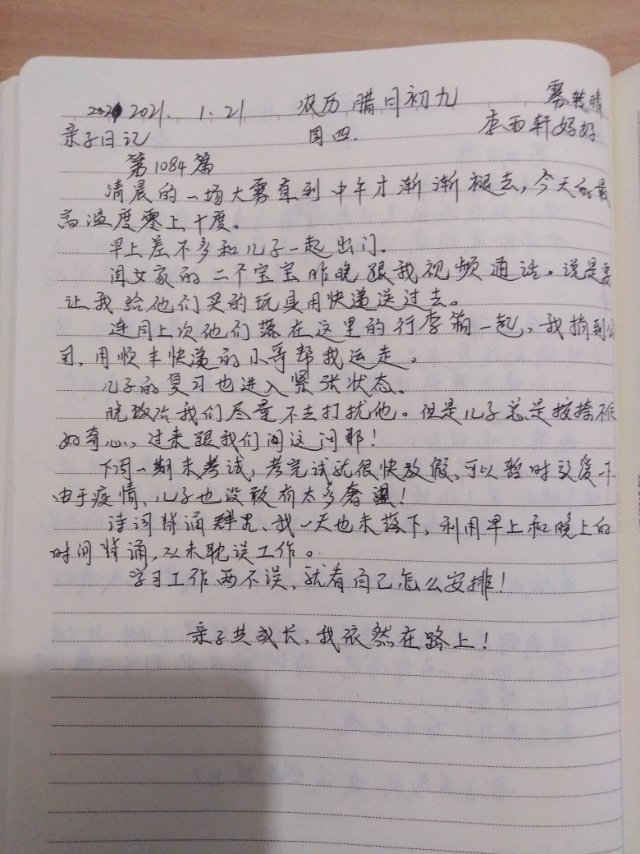 2021. 1. 21 农历腊月初九 雾转晴
亲子日记 周四. 李西轩妈妈
第1084篇
清晨的一场大雾直到中午才渐渐褪去,今天的最
高温度零上十度。
早上差不多和儿子一起出门.
闺女家的二个宝宝昨晚跟我视频通话。说是要
让我给他们买的玩具用快递送过去。
连同上次他们落在这里的行李箱一起,我捎到公
司,用顺丰快递的小哥帮我运走。
儿子的复习也进入紧张状态。
晚饭后我们尽量不去打扰他。但是儿子总是按捺不住
好奇心,过来跟我们问这问那!
下周一期末考试,考完试就很快放假,可以暂时放缓一下
由于疫情,儿子也没敢有太多奢望!
诗词背诵,我一天也未落下,利用早上和晚上的
时间背诵,从未耽误工作。
学习工作两不误,就看自己怎么安排!
亲子共成长,我依然在路上!